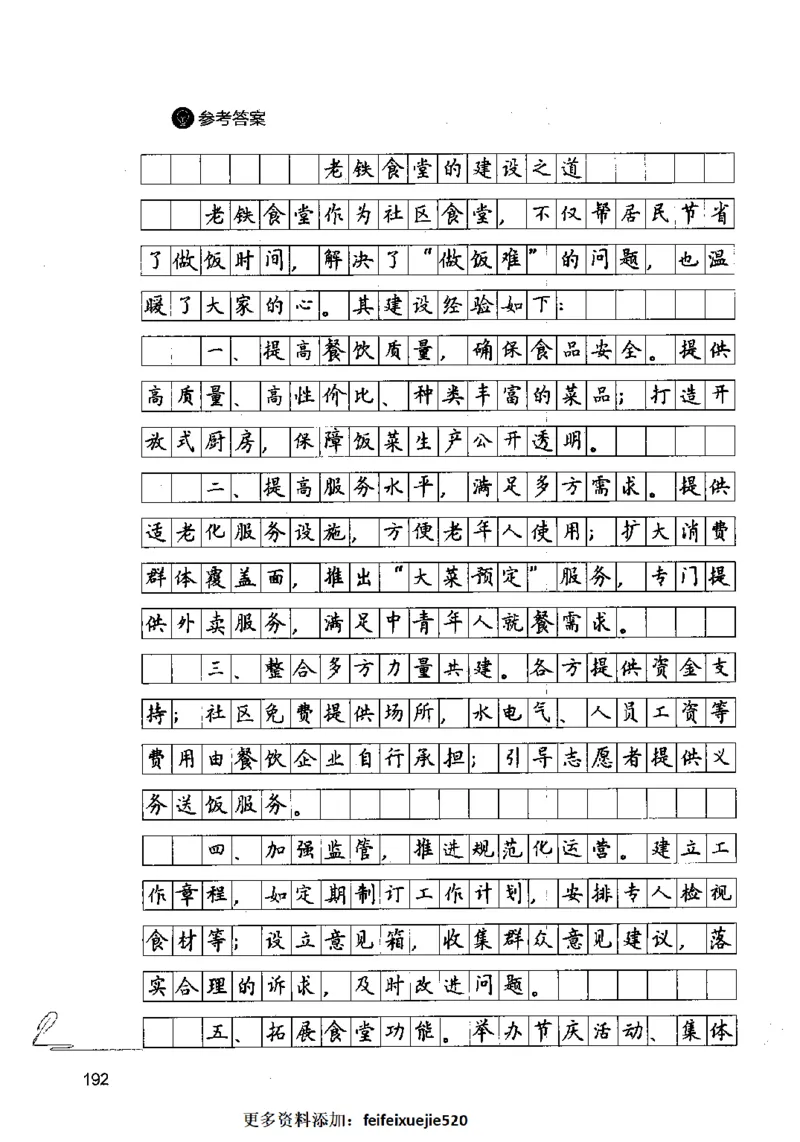 参考答案
老铁食堂的建设之道
老铁食堂作为社区食堂，不仅帮居民节省
了做饭时间，解决了“做饭难”的问题，也温
暖了大家的心。其建设经验如下：
一、提高餐饮质量，确保食品安全。提供
高质量、高性价比、种类丰富的菜品；打造开
放式厨房，保障饭菜生产公开透明。
二、提高服务水平，满足多方需求。提供
适老化服务设施，方便老年人使用；扩大消费
群体覆盖面，推出“大菜预定”服务，专门提
供外卖服务，满足中青年人就餐需求。
三、整合多方力量共建。各方提供资金支
持；社区免费提供场所，水电气、人员工资等
费用由餐饮企业自行承担；引导志愿者提供义
务送饭服务。
四、加强监管，推进规范化运营。建立工
作章程，如定期制订工作计划，安排专人检视
食材等；设立意见箱，收集群众意见建议，落
实合理的诉求，及时改进问题。
五、拓展食堂功能。举办节庆活动、集体
192
更多资料添加：feifeixuejie520